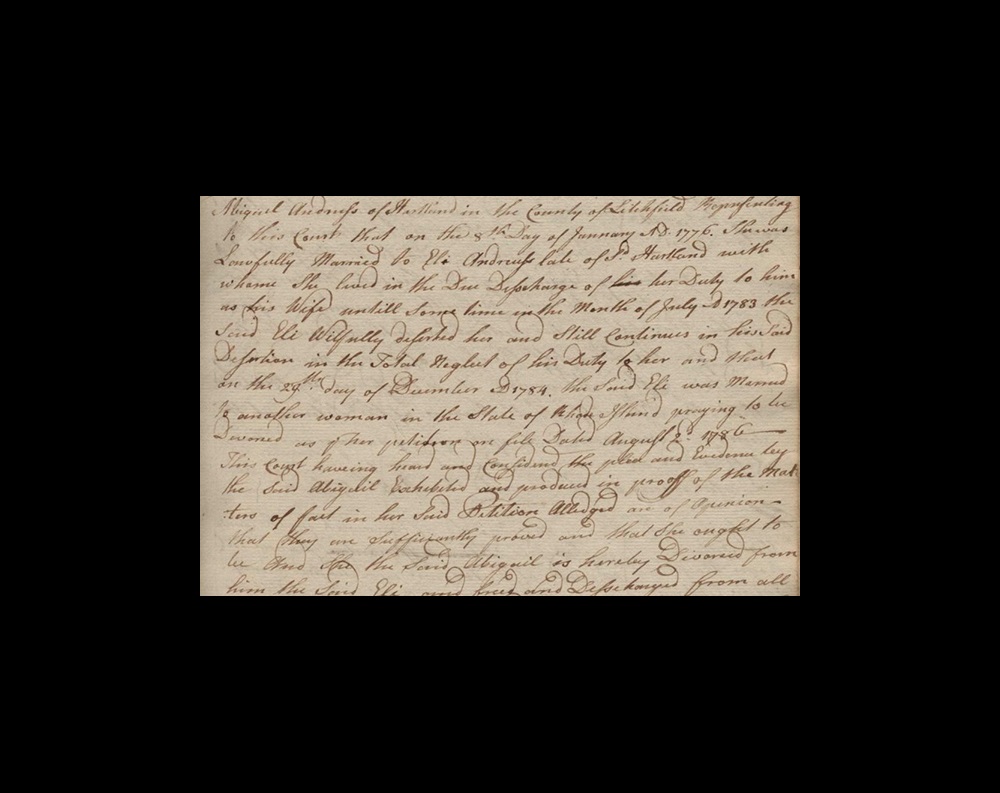 Abigael Andruss of Hartland in the County of Litchfield Representing
to this Court that on the 8th Day of January AD. 1776. She was
Lawfully Married to Eli Andruss late of Sd Hartland with
whome She lived in the Due Desscharge of his her Duty to him
as his Wife untill Some time in the Month of July AD 1783 the
Said Eli Wilfully deserted her and Still Continues in his Said
Desertion in the Total Neglect of his Duty to her and that
on the 29th day of December AD 1784. the Said Eli was Married
to another woman in the State of Rhode Island praying to be
Divorced as pr her petition on file Dated August 2d. 1786
This Court haveing heard and Considered the plea and Evidence by
the Said Abigail Exhibited and produced in prooff of the Mat
ters of fact in her Said Petition Alledged are of Opinion
that they are Sufficiently proved and that She ought to
be And She the Said Abigail is hereby Divorced from
him the Said Eli and freed and Desscharged from all